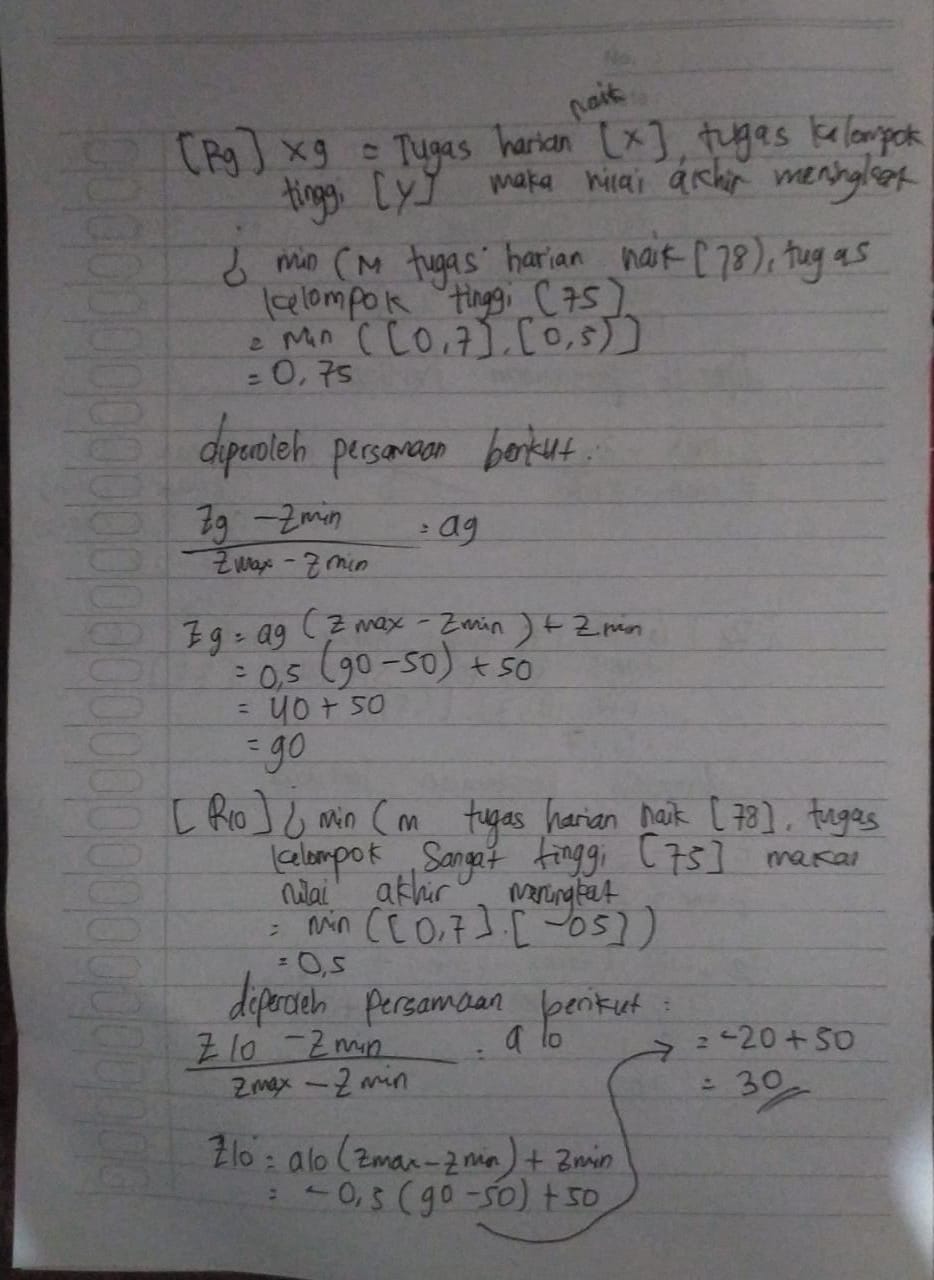 No.
naik
[R9] x9 = Tugas harian [x], tugas kelompok
tinggi [y] maka nilai akhir meningkat
¿ min (M tugas harian naik [78), tugas
kelompok tinggi [75]
= min ([0,7].[0,5)]
= 0,75
diperoleh persamaan berikut :
Z9 - Zmin
= a9
Zmax - Zmin
Z9 = a9 (Z max - Zmin) + Zmin
= 0,5 (90-50) + 50
= 40 + 50
= 90
[R10] ¿ min (m tugas harian naik [78], tugas
kelompok Sangat tinggi [75] maka
nilai akhir meningkat
= min ([0,7].[-05])
= 0,5
diperoleh persamaan berikut :
Z10 - Zmin
= a10
Zmax - Zmin
Z10 = a10 (Zmax - Zmin) + Zmin
= -0,5 (90-50) + 50
= -20 + 50
= 30